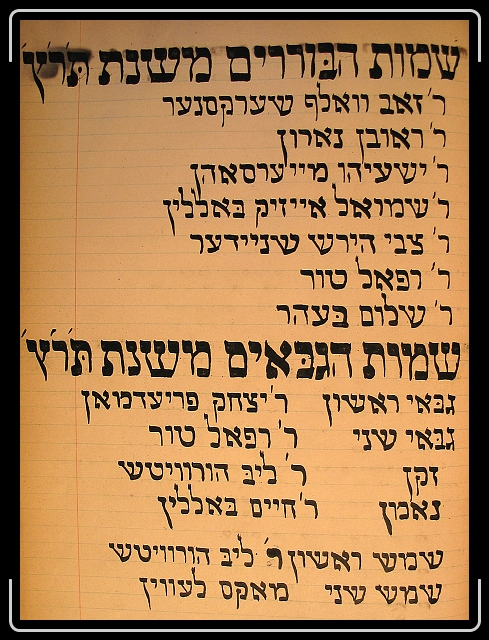 שמות הבוררים משנת תר״ץ
ר׳ זאב וואלף שערקסנער
ר׳ ראובן נארון
ר׳ ישעיהו מייערסאהן
ר׳ שמואל אייזיק באלליץ
ר׳ צבי הירש שניידער
ר׳ רפאל טור
ר׳ שלום בעהר
שמות הגבאים משנת תר״ץ
גבאי ראשון ר׳ יצחק פריעדמאן
גבאי שני ר׳ רפאל טור
זקן ר׳ ליב הורוויטש
נאמן ר׳ חיים באלליץ
שמש ראשון ר׳ ליב הורוויטש
שמש שני מאקס לעווין